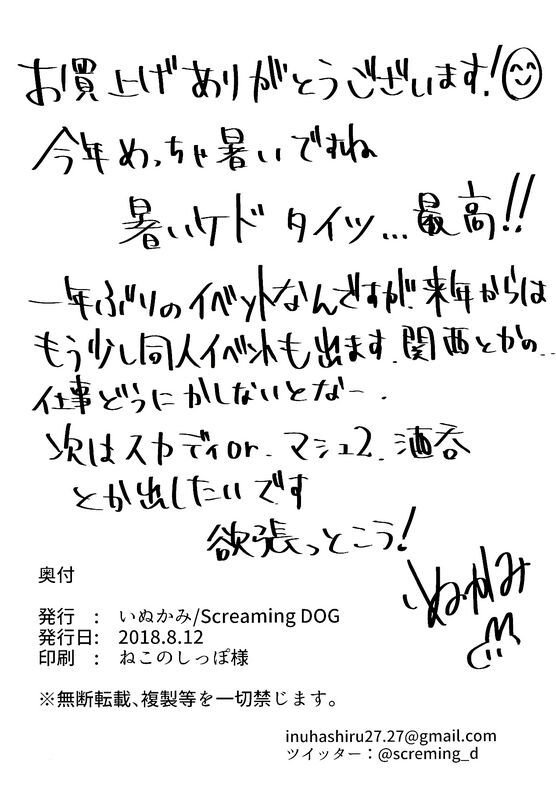 お買上げありがとうございます!
今年めっちゃ暑いですね
暑いケド タイツ...最高!!
一年ぶりのイベントなんですが、来年からは
もう少し同人イベントも出ます.関西とかの..
仕事どうにかしないとなー.
次はスカディor.マシュ2.酒呑
とか出したいです
欲張っとこう!
いぬかみ
奥付
発行 : いぬかみ/Screaming DOG
発行日: 2018.8.12
印刷 : ねこのしっぽ様
※無断転載、複製等を一切禁じます。
inuhashiru27.27@gmail.com
ツイッター:@screming_d